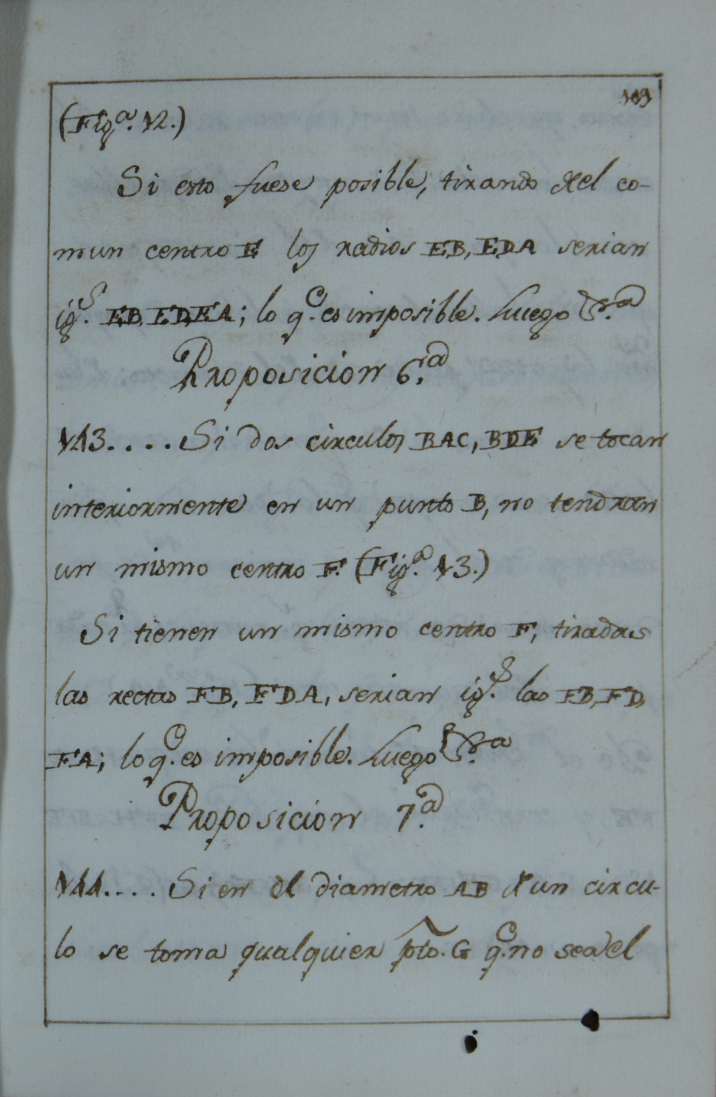 (Figª. 12.)
Si esto fuese posible, tirando del co-
mun centro E los radios EB, EDA serian
igˢ. EB, ED, EA; lo qᵉ. es imposible. Luego &ª
Proposicion 6.ª
113.... Si dos circulos BAC, BDE se tocan
interiormente en un punto B, no tendran
un mismo centro F. (Figª. 13.)
Si tienen un mismo centro F, tiradas
las rectas FB, FDA, serian igˢ. las FB, FD,
FA; lo qᵉ. es imposible. Luego &ª
Proposicion 7.ª
114.... Si en el diametro AB de un circu-
lo se toma qualquier pto. G qᵉ. no sea el